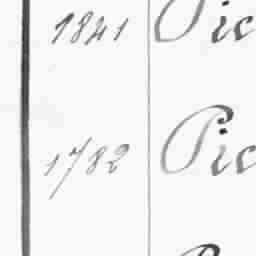 1841 Pic
1782 Pic